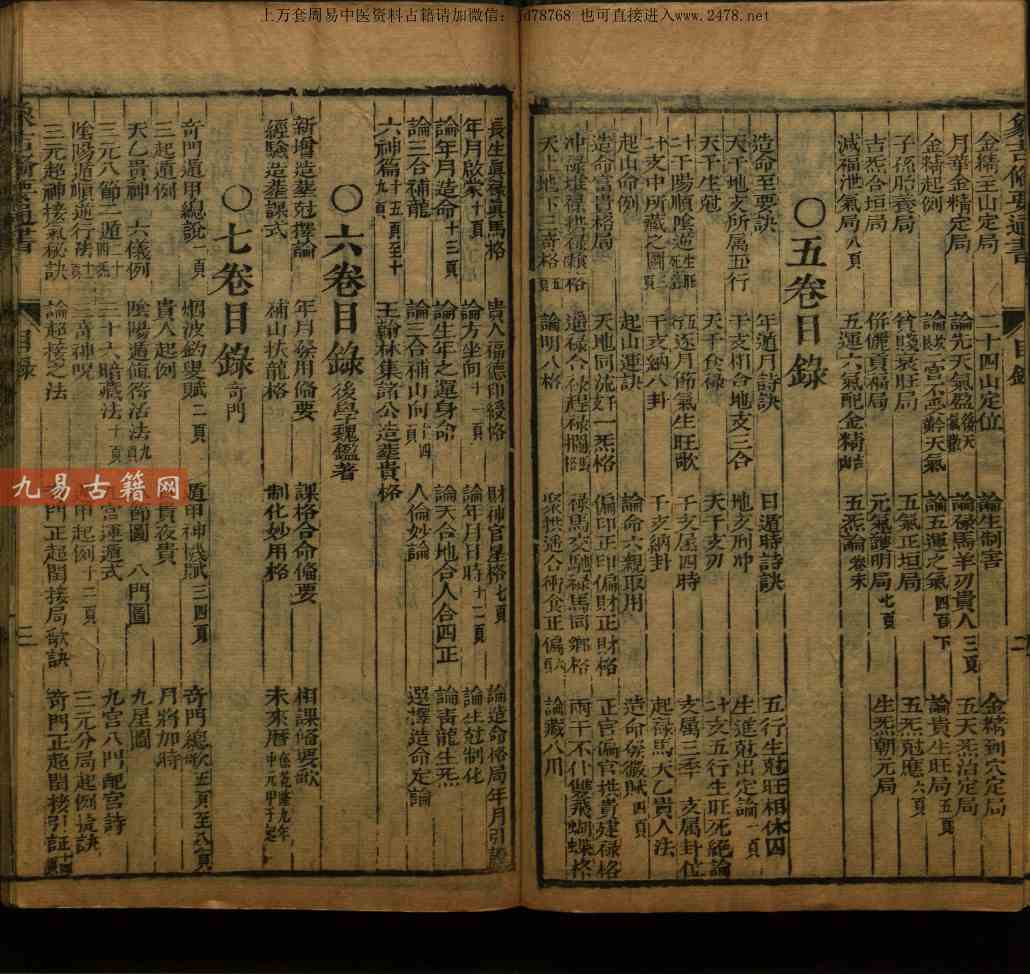 上万套周易中医资料古籍请加微信：jd78768 也可直接进入www.2478.net
金精王山定局 二十四山定位 論生制害 金精到穴定局
月華金精定局 論先天氣盈 論祿馬羊刃貴人三頁 五天炁治定局
金精起例 論五運之氣四頁下 論貴生旺局五頁
子孫胎養局 貧賤衰旺局 五氣正垣局 五炁尅應六頁
吉炁合垣局 元氣護明局七頁 生炁朝元局
減福泄氣局八頁 五運六氣配金精 五炁論卷末
○五卷目錄
造命至要訣 年遁月詩訣 日遁時詩訣 五行生尅旺相休囚
天干地支所屬五行 天干相合地支三合 地支刑冲 生進尅出定論一頁
天干生尅 天干食祿 天干支刃 十干五行生旺死絕論
十干陽順陰逆 五逐月節氣生旺歌 干支屬四時 支屬三季 支屬卦位
十二支中所藏之圖 干支納八卦 干支納卦 起祿馬天乙貴人法
起山命例 起山運訣 論命六親取用 造命發微賦四頁
造命富貴格局 天地同流 一炁格 偏印正印偏財正財格 正官偏官拱貴建祿格
冲祿堆祿拱祿 祿馬交馳祿馬同鄉格 兩干不什雙飛蝴蝶格
天上地下三奇格 論明八格 聚拱遙合衝食正偏 論藏八用
長生眞祿眞馬格 貴人福德印綬格 財神官星格七頁 論造命格局年月引證
年月啟蒙十頁 論方坐向十一頁 論年月日時十二頁 論生尅制化
論年月造命十三頁 論生年之運身命 論天合地合人合四正 論靑龍生炁
論三合補龍 論三合補山向十四頁 人倫妙論 選擇造命定論
六神篇十五頁至十九頁 王翰林集諸公造葬貴格
○六卷目錄 後學魏鑑著
新增造葬尅擇論 年月發用僃要 課格合命僃要 相課僃要歌
經驗造葬課式 補山扶龍格 制化妙用格 未來曆
○七卷目錄 奇門
奇門遁甲總說一頁 烟波釣叟賦二頁 遁甲神机賦三四頁 奇門總歌五頁至八頁
三起遁例 貴人起例 貴夜貴 月將加時
天乙貴神 六儀例 陰陽遁値符法九頁 節圖 八門圖 九星圖
三元八節二遁 三十六暗藏法十頁 宮運遁式 九宮八門配宮詩
陰陽遁順逆行法 三奇神呪 甲起例十二頁 三元分局起例
三元超神接氣秘訣 論超接之法 門正超閏接局歌訣 奇門正超閏接引証
目錄
二
三
九易古籍网